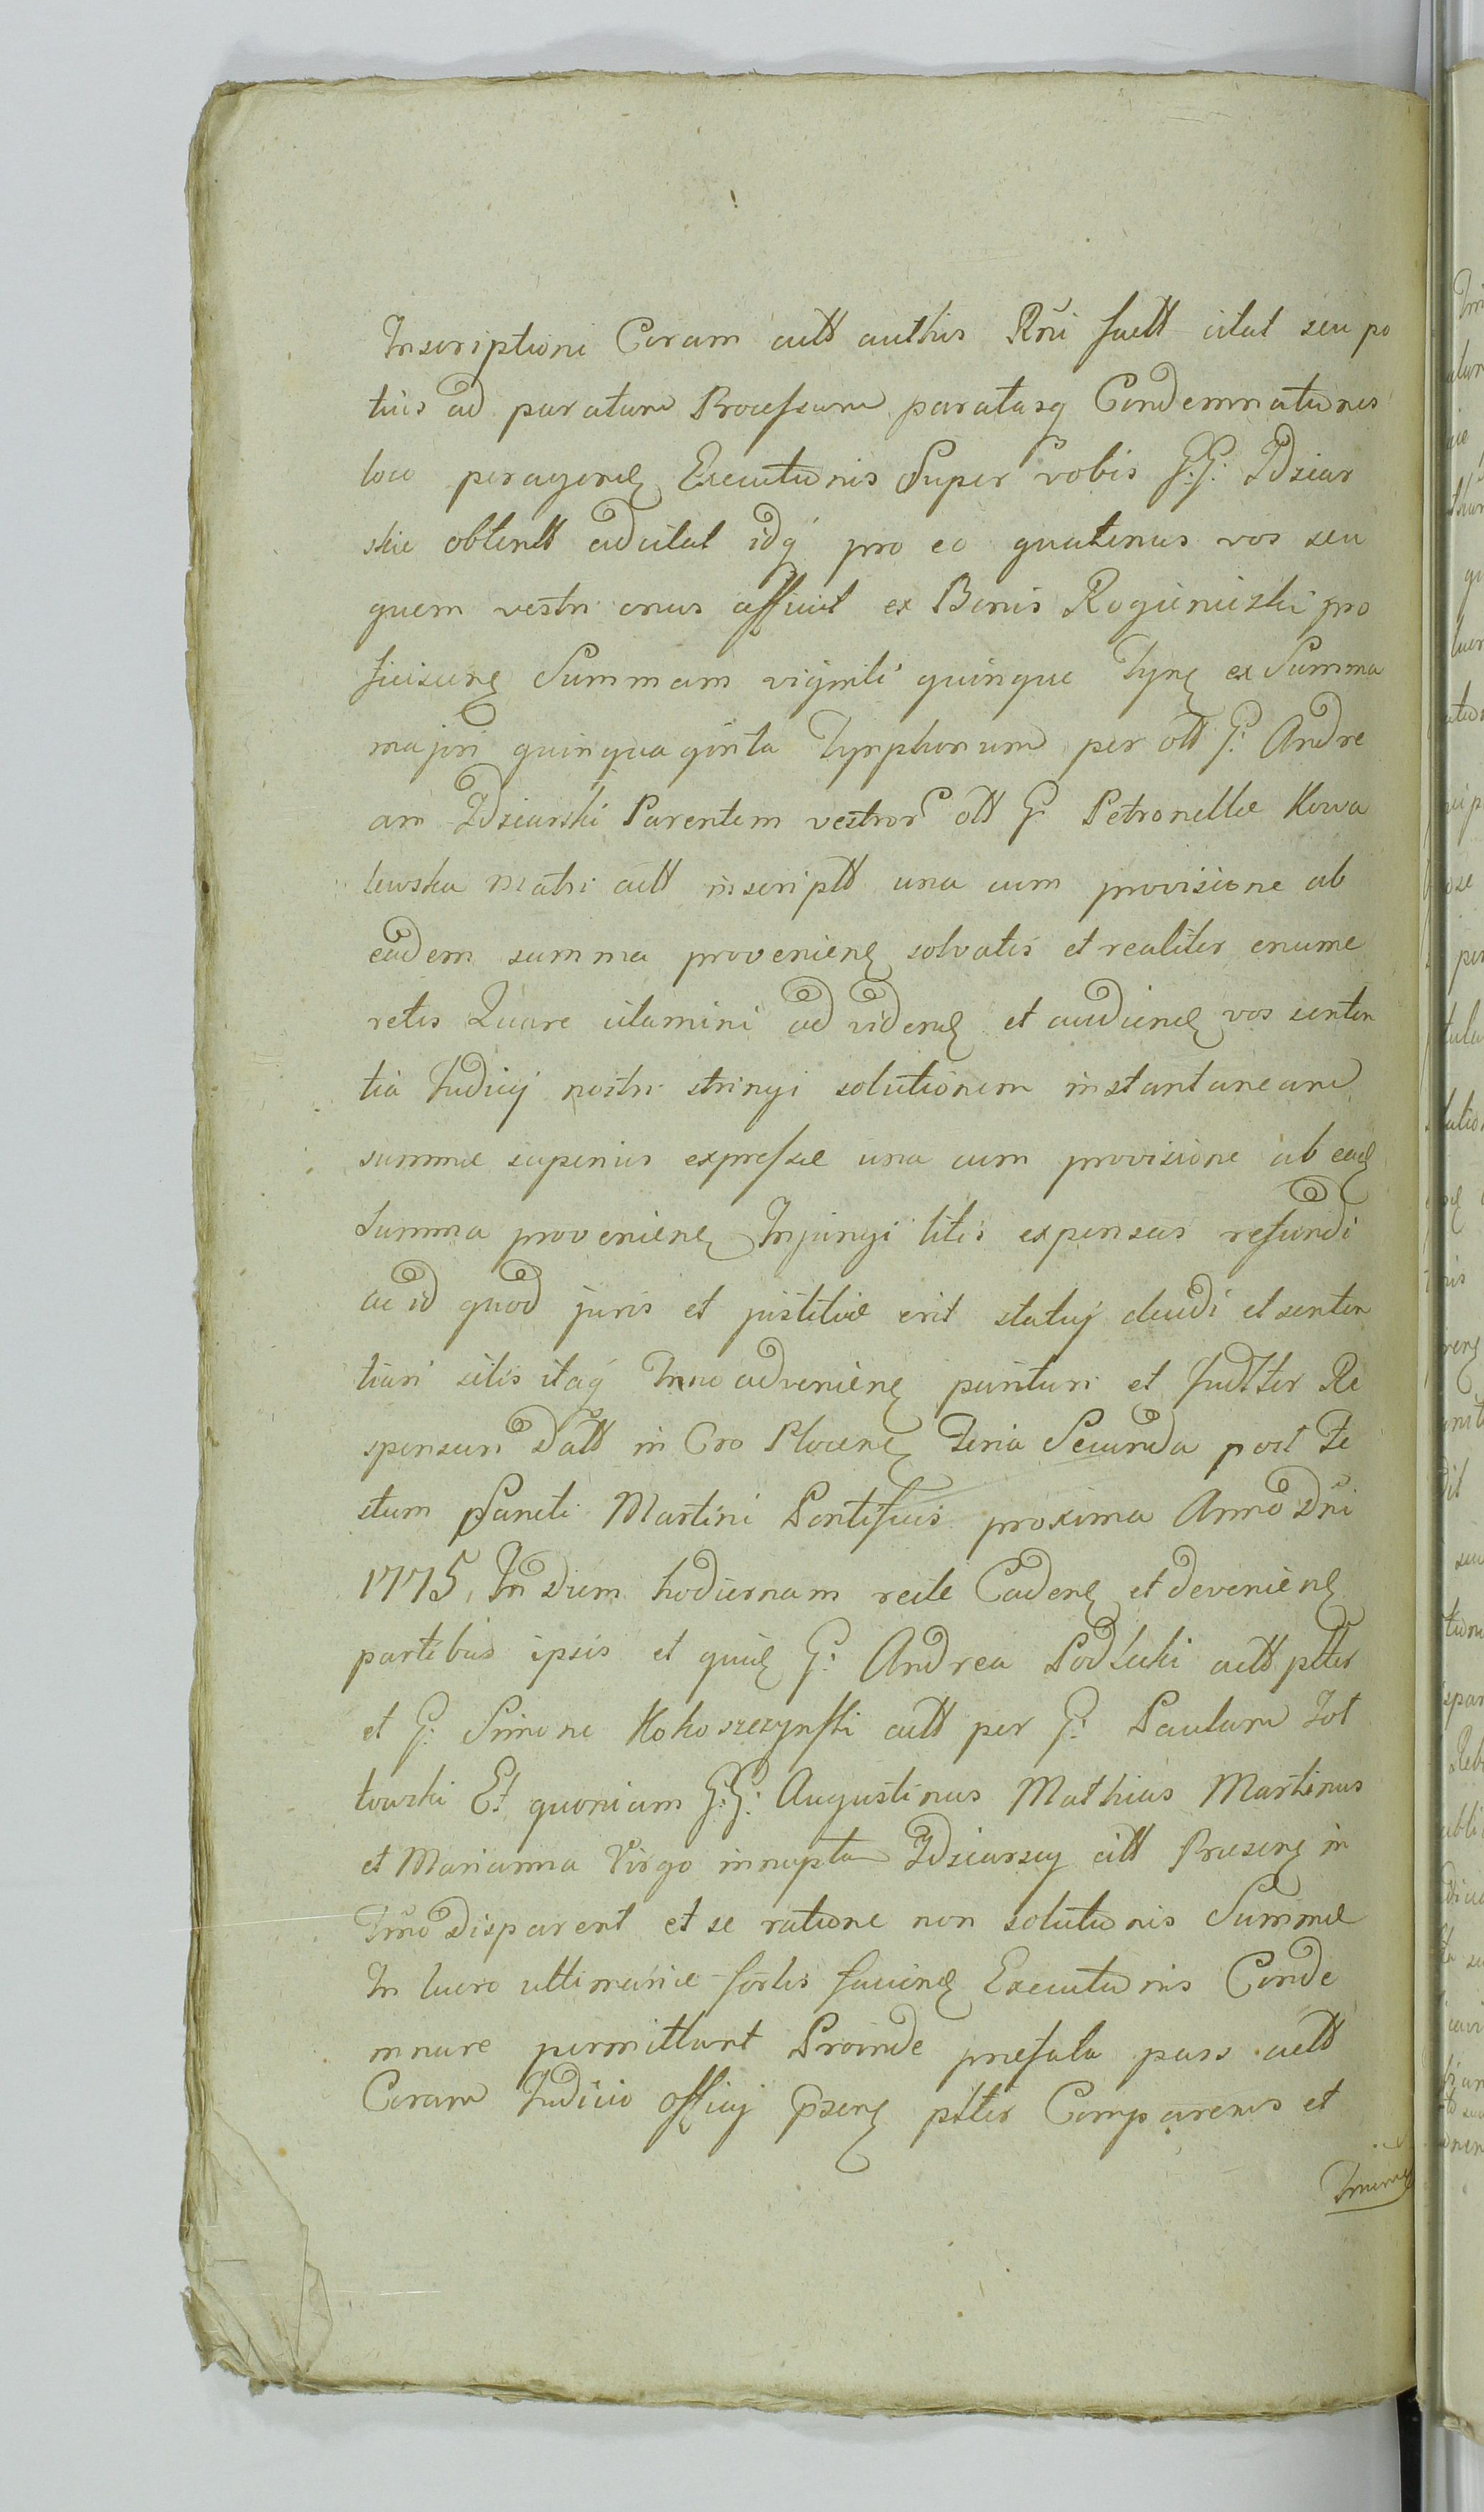 Inscriptioni Coram actt aucthis Rñi factt citat seu po
tius ad paratum Processum paratasq Condemnationes
loco peragend Executionis Super vobis G.G. Zdziar
skie obtentt adcitat idq pro eo quatenus vos seu
quem vestri onus afficit ex Bonis Rogieniczki pro
ficiscend Summam viginti quinque Tynf ex Summa
majori quinquaginta Tynphonum per ott G: Andre
am Zdziarski Parentem vestror ott G. Petronellæ Kowa
lewska matri actt inscriptt una cum provisione ab
eadem summa provenien solvatis et realiter enume
retis Quare citamini ad videnд et audiend vos senten
tia Judicij nostri stringi solutionem instantaneam
summæ superius expressæ una cum provisione ab ead
Summa provenien Injungi litis expensas refundi
ac id quod juris et justitiæ erit statuj decidi et senten
tiari sitis itaq Tnno advenien parituri et Judtter Re
sponsuri Datt in Cro Plocen Feria Secunda post Fe
stum Sancti Martini Pontificis proxima Anno Dñi
1775, In Diem hodiernam recte Caden et devenien
partibus ipsis et quid G: Andrea Podlecki actt pltter
et G: Simone Kokoszczynski actt per G: Paulum Zot
towski Et quoniam G:G: Augustinus Mathias Martinus
et Marianna Virgo innupta Zdziarscy citt Præsen in
Tnno disparent et se ratione non solutionis Summæ
In lucro ultimariæ fortis faciend Executionis Conde
mnare permittunt Proinde præfata pars actt
Coram Judicio Officij Præsen pltter Comparens et